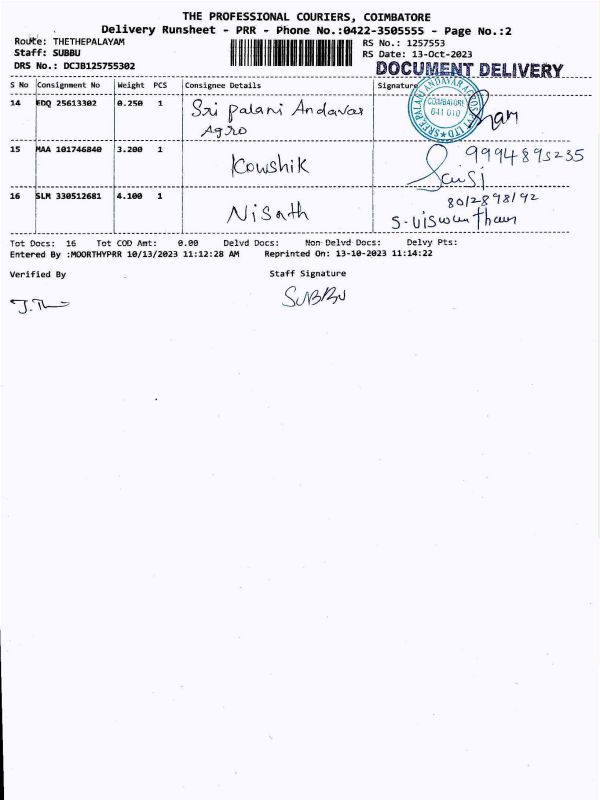 THE PROFESSIONAL COURIERS, COIMBATORE
Delivery Runsheet - PRR - Phone No.:0422-3505555 - Page No.:2
Route: THETHEPALAYAM
RS No.: 1257553
Staff: SUBBU
RS Date: 13-Oct-2023
DRS No.: DCJB125755302
DOCUMENT DELIVERY
S No Consignment No Weight PCS Consignee Details Signature
14 EDQ 25613302 0.250 1 Sri palani Andavar Agro
COIMBATORE
641 010
15 MAA 101746840 3.200 1 Kowshik 9994895235
16 SLM 330512681 4.100 1 Nisath
S. Viswanthan
Tot Docs: 16 Tot COD Amt: 0.00 Delvd Docs: Non Delvd Docs: Delvy Pts:
Entered By :MOORTHYPRR 10/13/2023 11:12:28 AM Reprinted On: 13-10-2023 11:14:22
Verified By Staff Signature
SUBBU